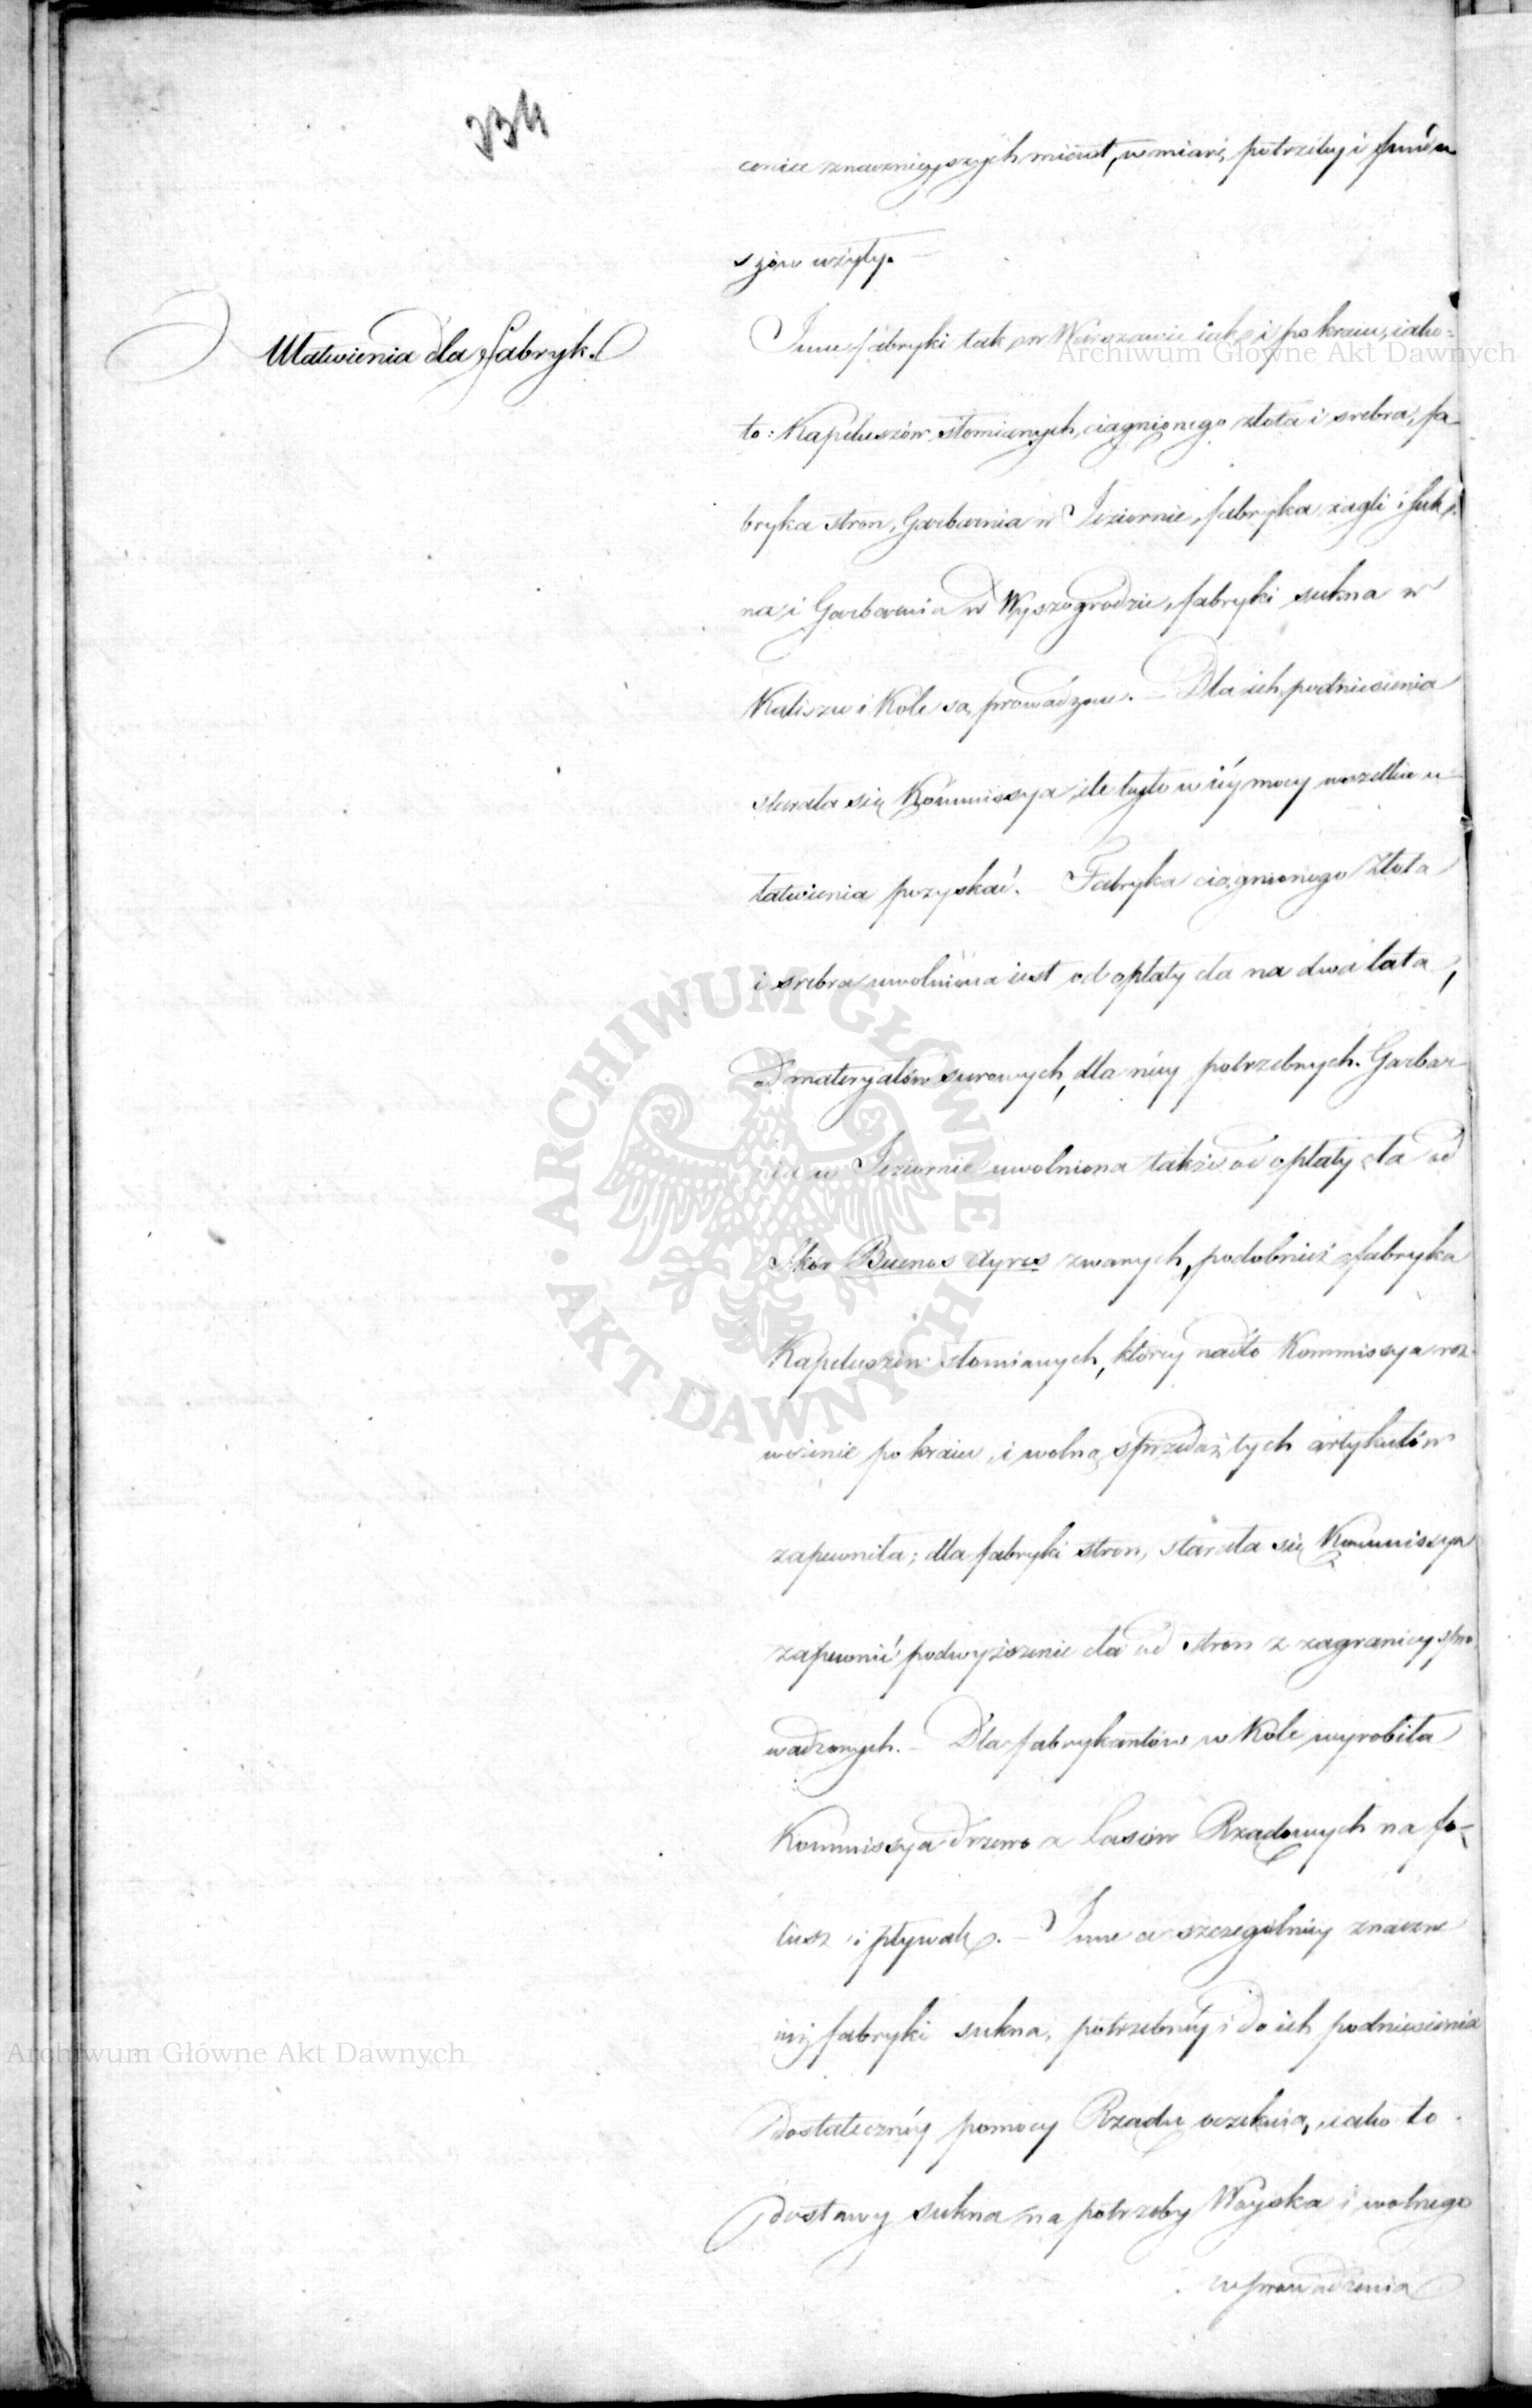 334
cenia znacznieyszych miast, w miarę potrzeby i fundu
szów użyty.
Ułatwienia dla fabryk.
Inne fabryki tak w Warszawie iak i po kraiu, iako-
to: Kapeluszów słomianych, ciągnionego złota i srebra, fa
bryka stron, Garbarnia w Jeziornie, fabryka żagli i suk-
na i Garbarnia w Wyszogrodzie, fabryki sukna w
Kaliszu i Kole są prowadzone. – Dla ich podniesienia
starała się Kommissya ile było w iéy mocy wszelkie u-
łatwienia pozyskać. Fabryka ciągnionego złota
i srebra uwolniona iest od opłaty cła na dwa lata,
od materyałów surowych, dla niéy potrzebnych. Garbar
nia w Jeziornie uwolniona także od opłaty cła od
skór Buenos Ayres zwanych, podobnież fabryka
Kapeluszów słomianych, któréy nadto Kommissya roz-
wożenie po kraiu, i wolną sprzedaż tych artykułów
zapewniła; dla fabryki stron, starała się Kommissya
zapewnić podwyższenie cła od stron z zagranicy spro
wadzonych. – Dla fabrykantów w Kole wyrobiła
Kommissya drzewo z lasów Rządowych na fo-
lusz i pływak. – Inne a szczególniéy znaczne
fabryki sukna, potrzebnéy i do ich podniesienia
dostatecznéy pomocy Rządu oczekuią, iako to
dostawy sukna na potrzeby Woyska i wolnego
wprowadzenia
Archiwum Główne Akt Dawnych
ARCHIWUM GŁÓWNE AKT DAWNYCH
Archiwum Główne Akt Dawnych